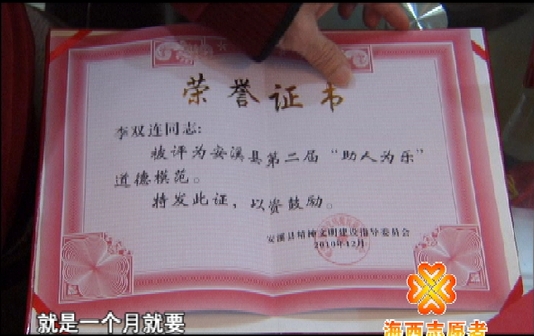 荣誉证书
李双连同志:
被评为安溪县第二届“助人为乐”
道德模范。
特发此证,以资鼓励。
安溪县精神文明建设指导委员会
2010年12月
就是一个月就要
海西志愿者